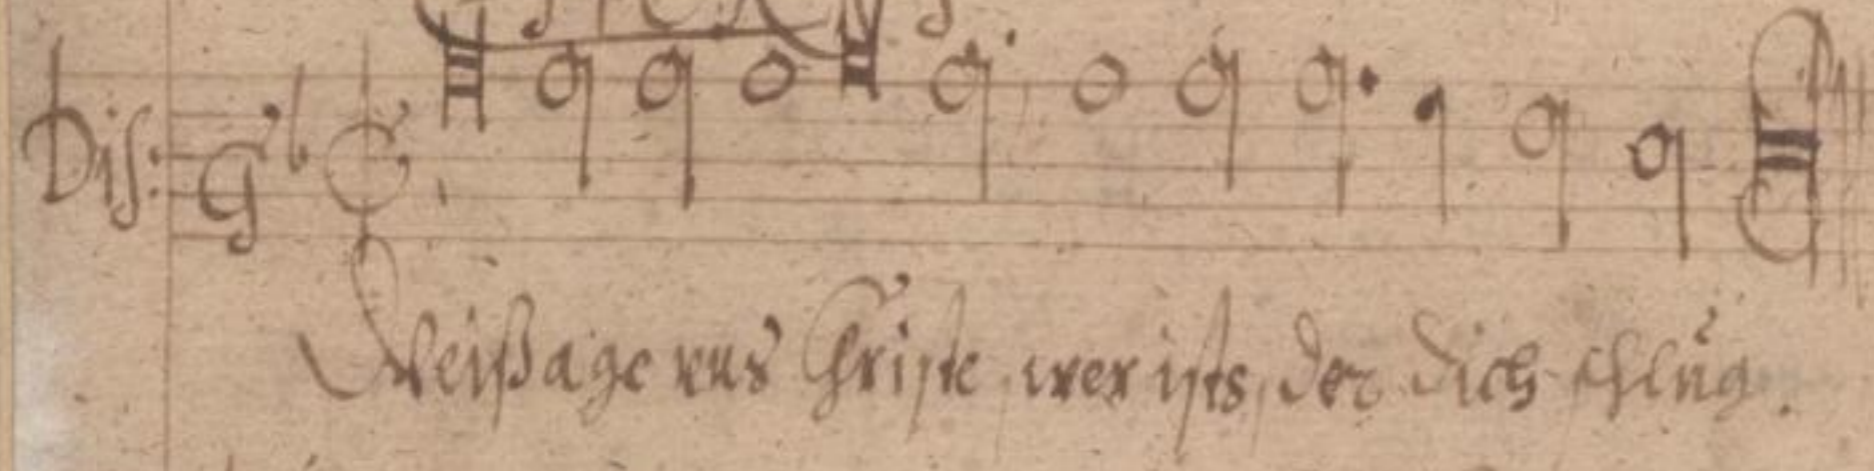 Dis:
Weissage uns Christe, wer ists, der dich schlug.